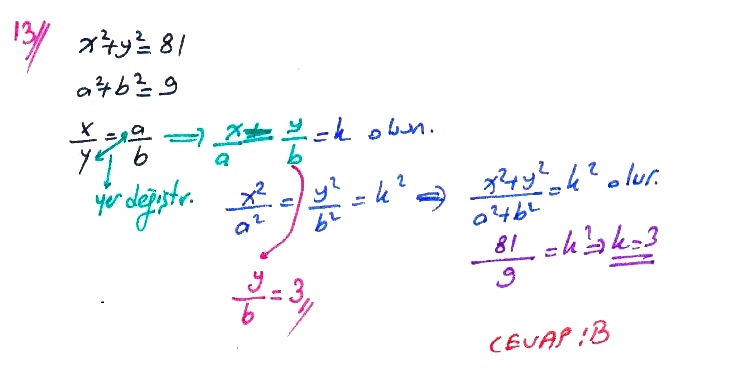 13//
x²+y²=81
a²+b²=9
x/y = a/b ⟹ x/a = y/b = k olsun.
yer değiştr.
x²/a² = y²/b² = k² ⟹ (x²+y²)/(a²+b²) = k² olur.
81/9 = k² ⟹ k=3
y/b = 3//
CEVAP: B